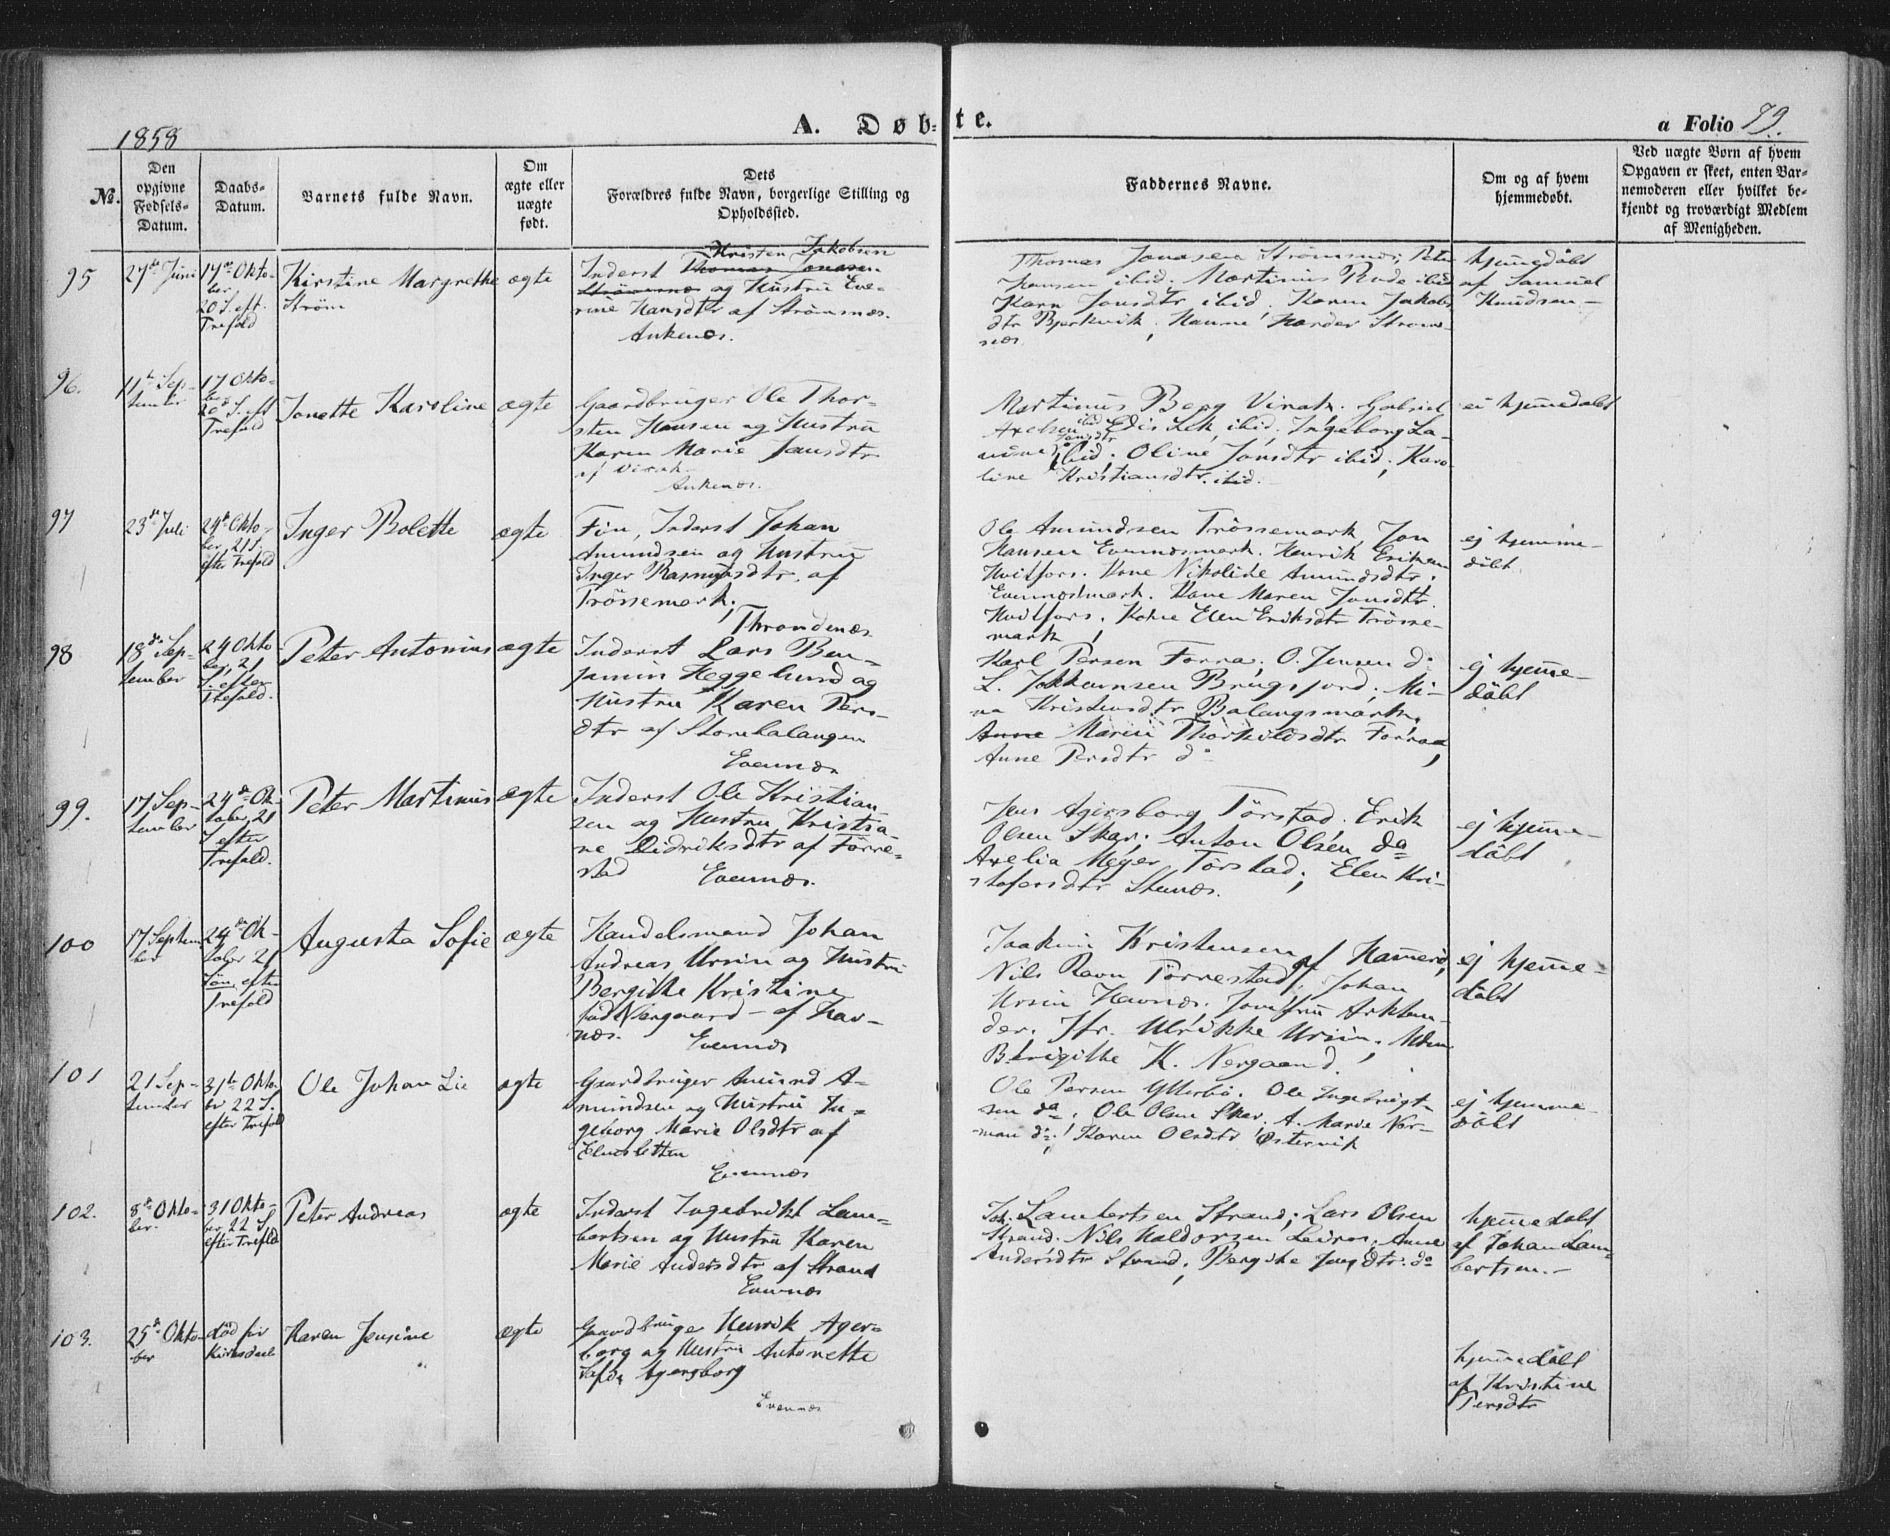 1858
A. Døbte.
a Folio 79.
No.
Den opgivne Fødsels-Datum.
Daabs-Datum.
Barnets fulde Navn.
Om ægte eller uægte født.
Dets Forældres fulde Navn, borgerlige Stilling og Opholdssted.
Faddernes Navne.
Om og af hvem hjemmedøbt.
Ved uægte Børn af hvem Opgaven er skeet, enten Barnemoderen eller hvilket bekjendt og troværdigt Medlem af Menigheden.
95
27de Juni
17de Okto-
ber
20 S. eft.
Trefold
Kirstine Margrethe
Strøm
ægte
Kristen Jakobsen
Inderst Thomas Jonasen
Strömsnæs og Hustru Eve-
rine Hansdtr af Strömsnæs.
Ankenæs.
Thomas Jonassen Strömsnæs; Peter
Hansen ibid. Martinus Rude ibid
Karn Jonsdtr ibid. Karen Jakobs
dtr Bjerkvik; Hanne Harder Ströms-
næs
hjemedöbt
af Samuel
Knudsen.
96.
11te Sep-
tember
17 Okto-
ber
20de S. eft
Trefold
Jonette Karoline
ægte
Gaardbruger Ole Thor-
sten Hansen og Hustru
Karen Marie Jansdtr
af Virak
Ankenæs.
Martinus Berg Virak. Gabriel
Axelsen ibid Edis Lek, ibid; Ingeborg La-
Jonsdtr ibid. Oline Jonsdtr ibid; Karo-
line Kristiansdtr. ibid.
ei hjemedøbt
97
23de Juli
24de Okto-
ber, 21 S.
efter Trefold
Inger Bolette
ægte
Fin, Inderst Johan
Amundsen og Hustru
Inger Rasmusdtr. af
Trössemark.
Throndenæs
Ole Amundsen Trössemark, Jon
Hansen Evenæsmark. Henrik Eriksen
Hvitfors. Kone Nikoline Amundsdtr.
Evenæsmark. Kone Maren Jonsdtr.
Hvitfors. Kone Elen Eriksdtr Trösse-
mark
ej hjemme-
döbt
98
18de Sep-
tember
24 Okto
ber, 21
S. efter
Trefold.
Peter Antonius
ægte
Inderst Lars Ben-
jamin Heggelund og
Hustru Karen Pers-
dtr af Storebalangen
Evenæs
Karl Persen Forra. O. Jensen do
L. Johhansen Brugsfjord. Mi-
na Kristensdtr Balangsmark.
Anne Marie Thorkildsdtr Forraa
Anne Persdtr do
ej hjeme-
döbt
99.
17 Sep-
tember
24de Ok-
tober, 21
S. efter
Trefold.
Peter Martinus
ægte
Inderst Ole Kristian-
sen og Hustru Kristia-
ne Didriksdtr af Törre-
stad
Evenæs.
Jens Agersborg Törstad. Erik
Olsen Skar; Anton Olsen do
Axelia Meyer Törstad; Elen Kri-
stofersdtr Stenæs.
ej hjeme-
döbt
100
17 Septem
ber
24de Ok-
tober 21
Søn. efter
Trefold
Augusta Sofie
ægte
Handelsmand Johan
Andreas Ursin og Hustru
Bergithe Kristine
född Nærgaard - af Hav-
næs.
Evenæs
Joakim Kristensen af Hamerö,
Nils Ravn Törrestad. Johan
Ursin Havnæs. Jomfru Arktan-
der. Jfr. Ulrikke Ursin.
Brigithe K. Nergaard.
ej hjeme-
döbt
101
21 Sep-
tember
31te Okto
ber 22 S.
efter Trefold
Ole Johan Lie
ægte
Gaardbruger Amund A-
mundsen og Hustru In-
geborg Marie Olsdtr af
Elvesletten
Evenæs
Ole Persen Ytterbö. Ole Ingebrigt-
sen do. Ole Olsen Skar. A. Marie Nor-
man do. Karen Olsdtr Østervik
ej hjemme-
döbt
102.
8de Okto-
ber.
31 Okto-
ber, 22 S.
efter Trefold
Peter Andreas
ægte
Inderst Ingebrikt Lam-
bertsen og Hustru Karen
Marie Andersdtr af Strand
Evenæs
Joh. Lambertsen Strand; Lars Olsen
Strand. Nils Haldorsen Leiros, Anne
Andersdtr Strand; Bergithe Jonsdtr. do
hjemedöbt
af Johan Lam-
bertsen.
103.
25de Okto-
ber
död för
Kirkedaab
Karen Jensine
ægte
Gaardbruge Henrik Ager-
borg og Hustru Antonette
Sofie Agersborg
Evenæs
hjemedöbt
af Kristine
Persdtr